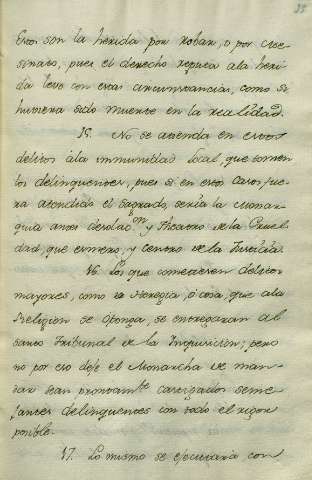 33
Estos son la herida por robar, o por acese-
sinato, pues el derecho reputa a la heri-
da leve con estas circunstancias, como si
huviera sido muerte en la realidad.
15. No se atienda en estos
delitos à la immunidad local, que comen-
tos delinquentes, pues si en estos casos fue-
ra atendido el sagrado, seria la Monar-
quia antes desolac.on y theatro de la Cruel-
dad, que esmero, y centro de la Justicia.
16. Los que cometieren delitos
mayores, como la Heregia, ò cosa, que a la
Religion se oponga, se entregaran al
santo Tribunal de la Inquisicion; pero
no por eso deje el Monarcha de man-
dar sean prontam.te castigados seme-
jantes delinquentes con todo el rigor
posible.
17. Lo mismo se ejecutará con